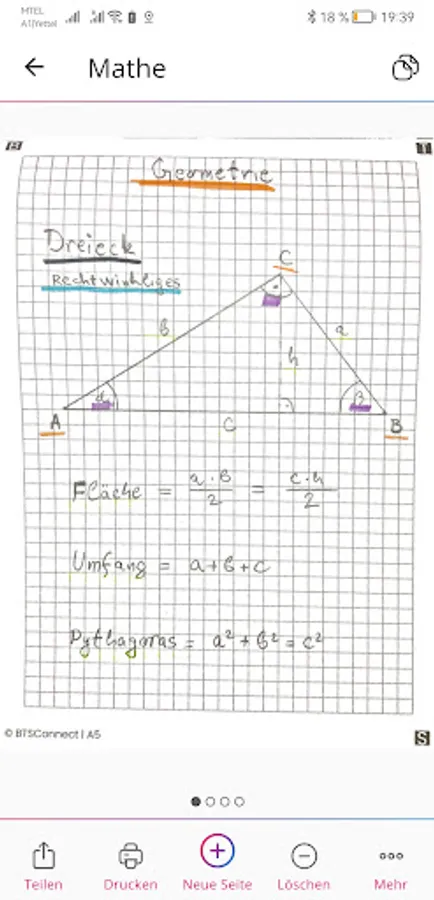 MTEL
A1/Yettel
18 % 19:39
Mathe
B T
Geometrie
Dreieck
Rechtwinkliges
C
b a
h
α β
A B
C
Fläche = a·b/2 = c·h/2
Umfang = a+b+c
Pythagoras = a² + b² = c²
© BTSConnect | A5
S
Teilen Drucken Neue Seite Löschen Mehr